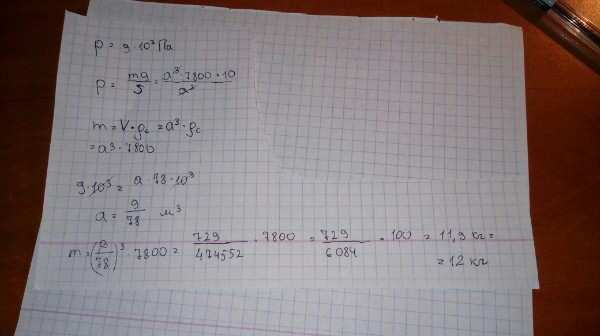 p = 9·10³ Па
p = mg/S = a³·7800·10/a²
m = V·ρc = a³·ρc
= a³·7800
9·10³ = a·78·10³
a = 9/78 м³
m = (9/78)³·7800 = 729/474552 · 7800 = 729/6084 · 100 = 11,9 кг =
= 12 кг